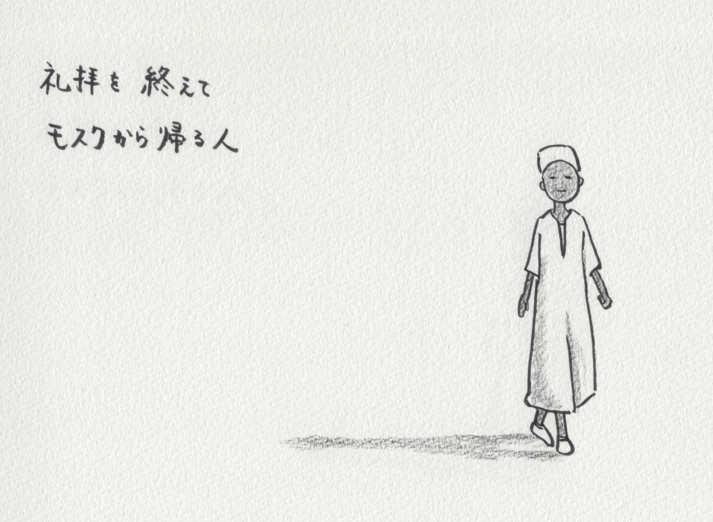 礼拝を終えて
モスクから帰る人